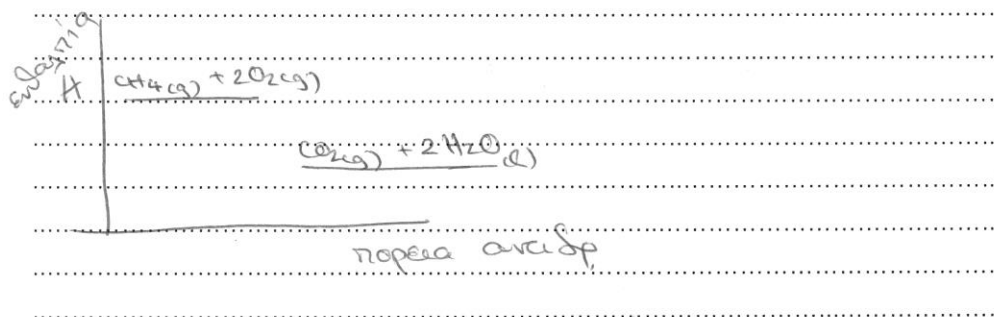 ενθαλπία
H
CH4(g) + 2O2(g)
CO2(g) + 2H2O(l)
πορεια αντιδρ.